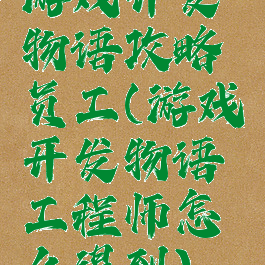 游戏开发
物语攻略
员工(游戏
开发物语
工程师怎
么得到)